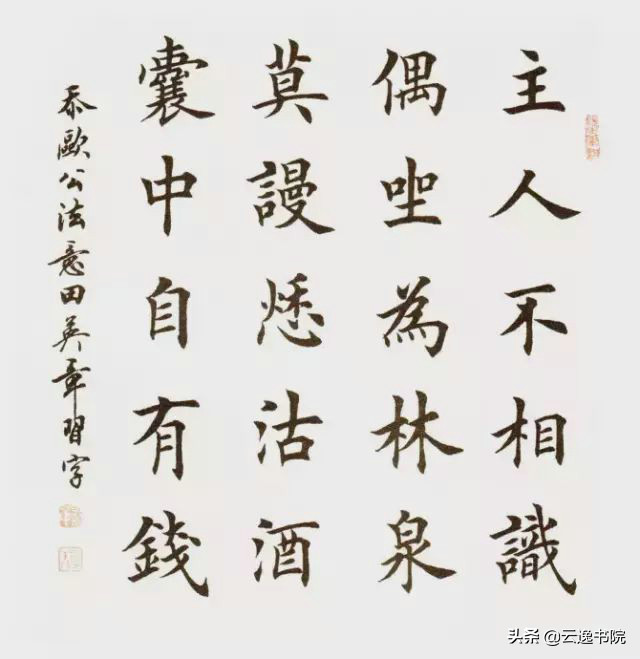 主人不相識
偶坐為林泉
莫謾愁沽酒
囊中自有錢
忝歐公法意田英章習字
头条 @云逸书院